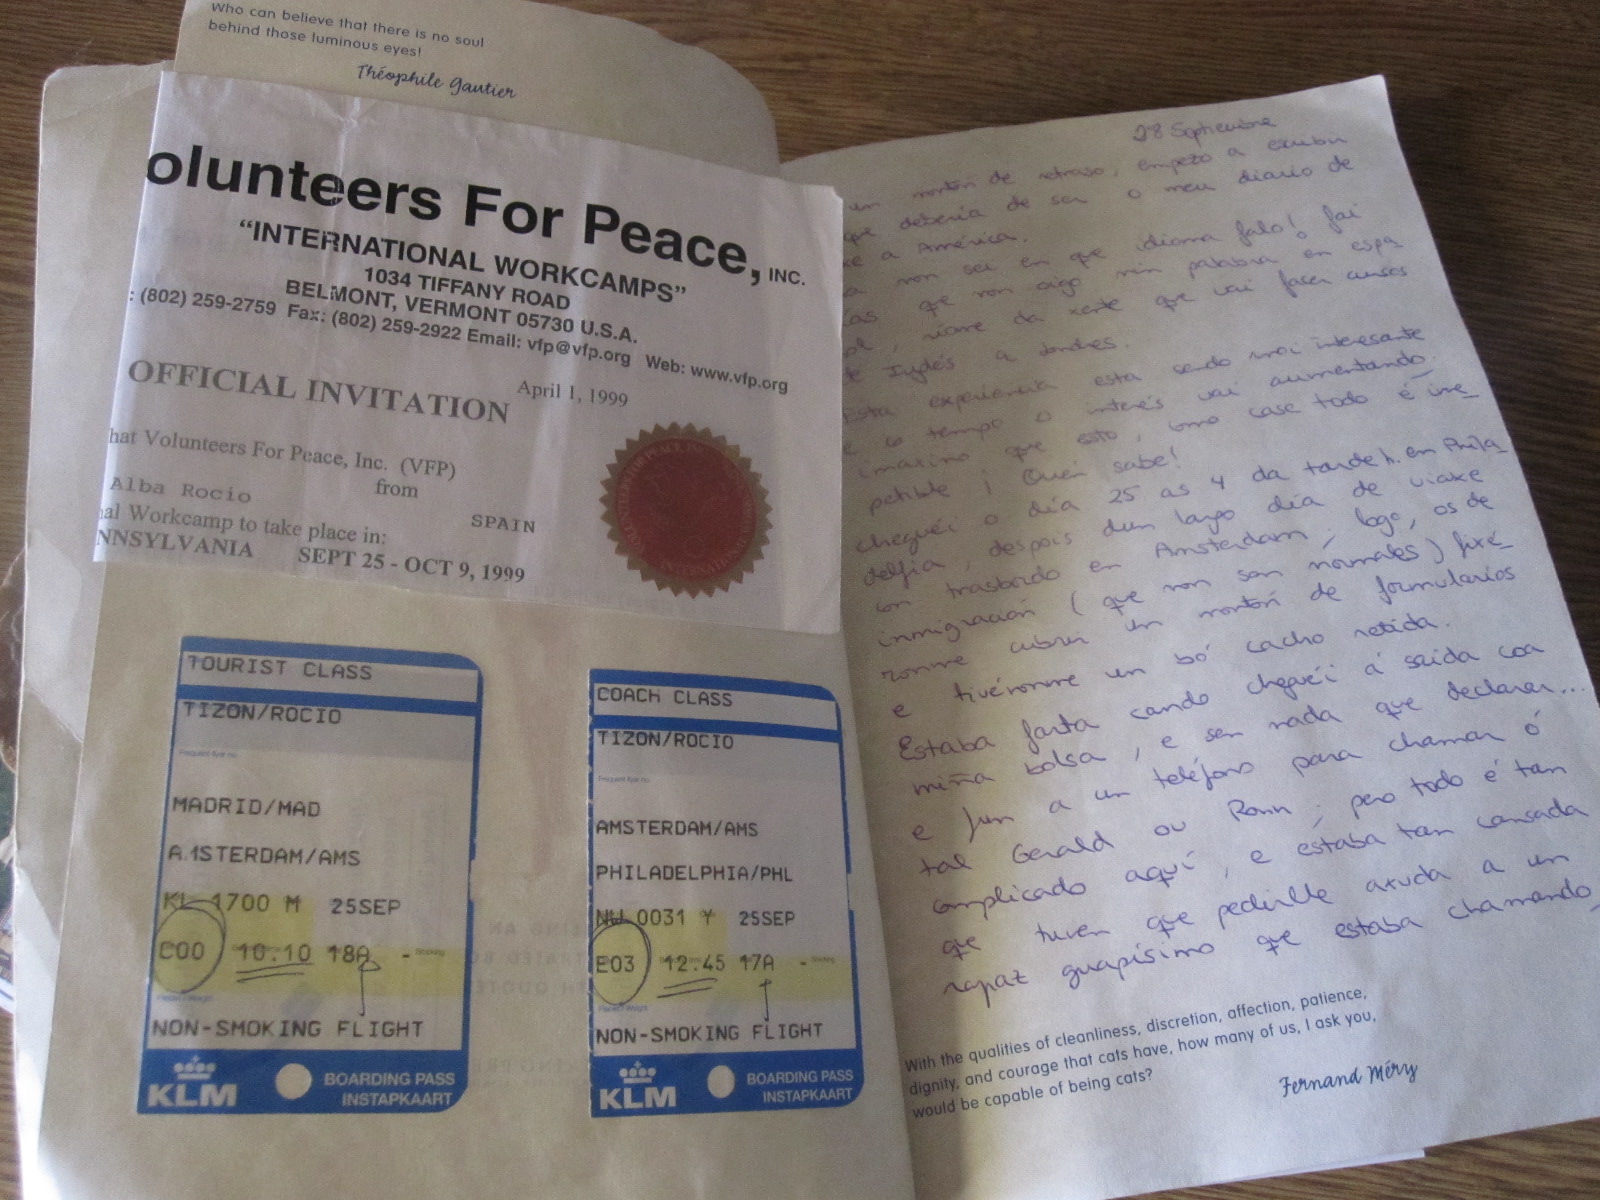 Who can believe that there is no soul
behind those luminous eyes!
Théophile Gautier
olunteers For Peace, INC.
“INTERNATIONAL WORKCAMPS”
1034 TIFFANY ROAD
BELMONT, VERMONT 05730 U.S.A.
: (802) 259-2759 Fax: (802) 259-2922 Email: vfp@vfp.org Web: www.vfp.org
OFFICIAL INVITATION
April 1, 1999
hat Volunteers For Peace, Inc. (VFP)
from
Alba Rocio
SPAIN
al Workcamp to take place in:
NNSYLVANIA SEPT 25 - OCT 9, 1999
TOURIST CLASS
TIZON/ROCIO
MADRID/MAD
A.1STERDAM/AMS
KL 1700 M 25SEP
C00 10.10 18A -
NON-SMOKING FLIGHT
KLM
BOARDING PASS
INSTAPKAART
COACH CLASS
TIZON/ROCIO
AMSTERDAM/AMS
PHILADELPHIA/PHL
NW 0031 Y 25SEP
E03 12.45 17A -
NON-SMOKING FLIGHT
KLM
BOARDING PASS
INSTAPKAART
28 Septiembre
un montón de retraso, empezo a escribir
que debería de ser o meu diario de
e a América.
a non sei en que idioma falo! fai
ías que non oigo nin palabra en espa
ol, niare da xente que vai facer cursos
de Inglés a Londres.
Esta experiencia esta sendo moi interesante
e co tempo o interés vai aumentando.
imaxino que esto, como case todo é irre
petible ¡ Quen sabe!
cheguei o día 25 as 4 da tarde h. en Phila
delfia, despois dun largo día de viaxe
con trasbordo en Amsterdam; logo, os de
inmigración (que non son normales) fixé
ronme cubrir un montón de formularios
e tivéronme un bó cacho retida.
Estaba farta cando cheguei á saída coa
miña bolsa, e sen nada que declarar...
e fun a un teléfono para chamar ó
tal Gerald ou Ronn; pero todo é tan
complicado aquí, e estaba tan cansada
que tuven que pedirlle axuda a un
rapaz guapísimo que estaba chamando
With the qualities of cleanliness, discretion, affection, patience,
dignity, and courage that cats have, how many of us, I ask you,
would be capable of being cats?
Fernand Méry